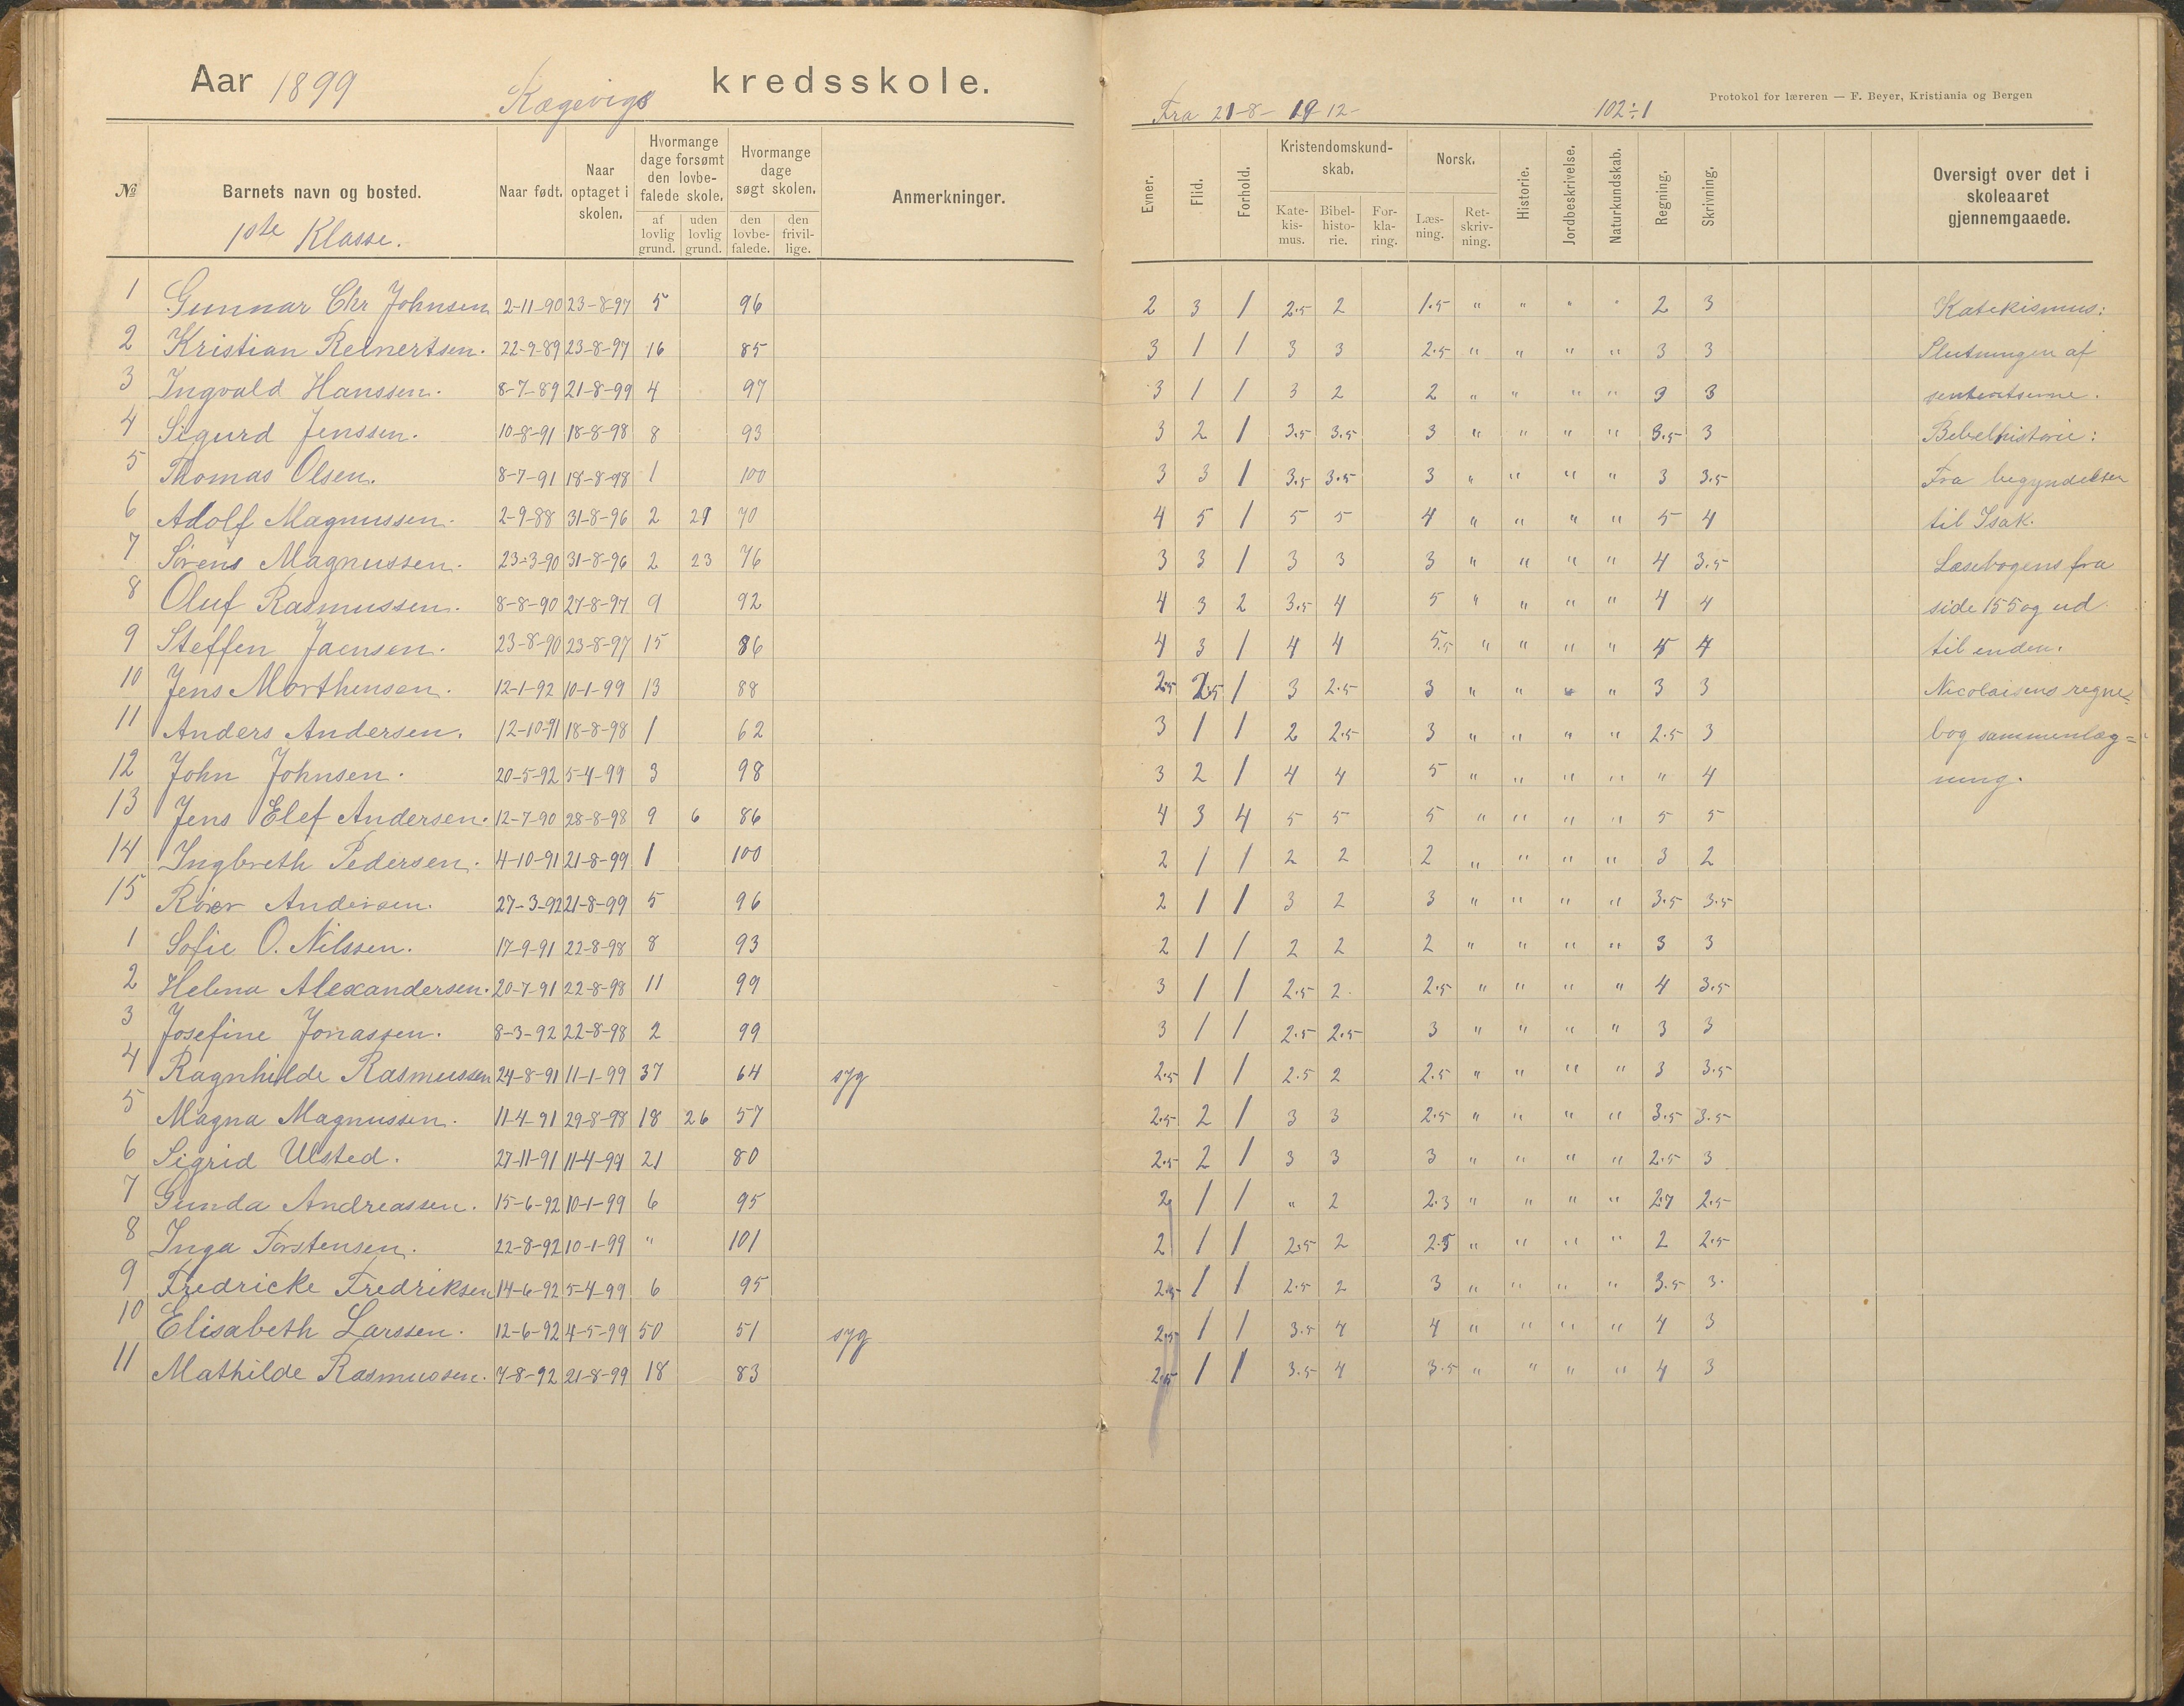 Aar 1899 Kægevigs kredsskole.
№ Barnets navn og bosted. Naar født. Naar optaget i skolen. Hvormange dage forsømt den lovbefalede skole. af lovlig grund. uden lovlig grund. Hvormange dage søgt skolen. den lovbefalede. den frivillige. Anmerkninger.
1ste Klasse.
1 Gunnar Chr Johnsen 2-11-90 23-8-97 5 96
2 Kristian Reinertsen. 22-9-89 23-8-97 16 85
3 Ingvald Hanssen. 8-7-89 21-8-99 4 97
4 Sigurd Jenssen. 10-8-91 18-8-98 8 93
5 Thomas Olsen. 8-7-91 18-8-98 1 100
6 Adolf Magnussen. 2-9-88 31-8-96 2 29 70
7 Sørens Magnussen. 23-3-90 31-8-96 2 23 76
8 Oluf Rasmussen. 8-8-90 27-8-97 9 92
9 Steffen Jaensen. 23-8-90 23-8-97 15 86
10 Jens Morthensen. 12-1-92 10-1-99 13 88
11 Anders Andersen. 12-10-91 18-8-98 1 62
12 John Johnsen. 20-5-92 5-4-99 3 98
13 Jens Elef Andersen. 12-7-90 28-8-98 9 6 86
14 Ingbreth Pedersen. 4-10-91 21-8-99 1 100
15 Andersen. 27-3-92 21-8-99 5 96
1 Sofie O. Nilssen. 17-9-91 22-8-98 8 93
2 Helena Alexandersen. 20-7-91 22-8-98 11 99
3 Josefine Jonassen. 8-3-92 22-8-98 2 99
4 Ragnhilde Rasmussen 24-8-91 11-1-99 37 64 syg
5 Magna Magnussen. 11-4-91 29-8-98 18 26 57
6 Sigrid Ulsted. 27-11-91 11-4-99 21 80
7 Gunda Andreassen. 15-6-92 10-1-99 6 95
8 Inga Torstensen. 22-8-92 10-1-99 " 101
9 Fredricke Fredriksen 14-6-92 5-4-99 6 95
10 Elisabeth Larssen. 12-6-92 4-5-99 50 51 syg
11 Mathilde Rasmussen. 7-8-92 21-8-99 18 83
Fra 21-8- 19-12- 102÷1 Protokol for læreren — F. Beyer, Kristiania og Bergen
Evner. Flid. Forhold. Kristendomskundskab. Katekismus. Bibelhistorie. Forklaring. Norsk. Læsning. Retskrivning. Historie. Jordbeskrivelse. Naturkundskab. Regning. Skrivning. Oversigt over det i skoleaaret gjennemgaaede.
2 3 1 2.5 2 1.5 " " " " 2 3 Katekismus:
3 1 1 3 3 2.5 " " " " 3 3 Slutningen af
3 1 1 3 2 2 " " " " 3 3
3 2 1 3.5 3.5 3 " " " " 3.5 3 Bibelhistorie:
3 3 1 3.5 3.5 3 " " " " 3 3.5 Fra begyndelsen
4 5 1 5 5 4 " " " " 5 4 til Isak.
3 3 1 3 3 3 " " " " 4 3.5 Læsebogens fra
4 3 2 3.5 4 5 " " " " 4 4 side 155 og ud
4 3 1 4 4 5.5 " " " " 4 til enden.
2.5 2.5 1 3 2.5 3 " " " " 3 3 Nicolaisens regne=
3 1 1 2 2.5 3 " " " " 2.5 3 bog sammenlæg=
3 2 1 4 4 5 " " " " " 4 ning.
4 3 4 5 5 5 " " " " 5 5
2 1 1 2 2 2 " " " " 3 2
2 1 1 3 2 3 " " " " 3.5 3.5
2 1 1 2 2 2 " " " " 3 3
3 1 1 2.5 2 2.5 " " " " 4 3.5
3 1 1 2.5 2.5 3 " " " " 3 3
2.5 1 1 2.5 2 2.5 " " " " 3 3.5
2.5 2 1 3 3 2.5 " " " " 3.5 3.5
2.5 2 1 3 3 3 " " " " 2.5 3
2 1 1 " 2 2.3 " " " " 2.7 2.5
2 1 1 2.5 2 2.5 " " " " 2 2.5
2.5 1 1 2.5 2 3 " " " " 3.5 3.
2.5 1 1 3.5 4 4 " " " " 4 3
2.5 1 1 3.5 4 3.5 " " " " 4 3